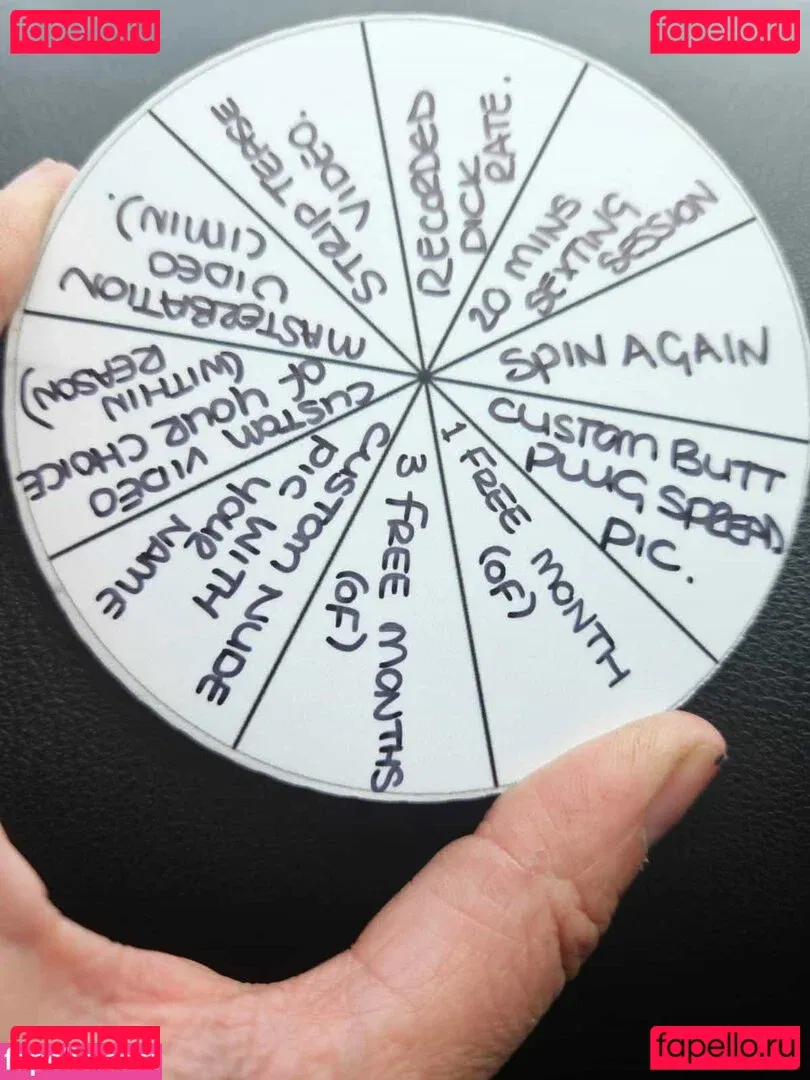 fapello.ru
fapello.ru
STRIP TEASE
VIDEO.
RECORDED
DICK
RATE.
20 MINS
SEXTING
SESSION
SPIN AGAIN
CUSTOM BUTT
PLUG SPREAD
PIC.
1 FREE MONTH
(OF)
3 FREE MONTHS
(OF)
CUSTOM NUDE
PIC WITH
YOUR
NAME
CUSTOM VIDEO
OF YOUR CHOICE
(WITHIN
REASON)
MASTERBATION
VIDEO
(1MIN).
fapello.ru
fapello.ru